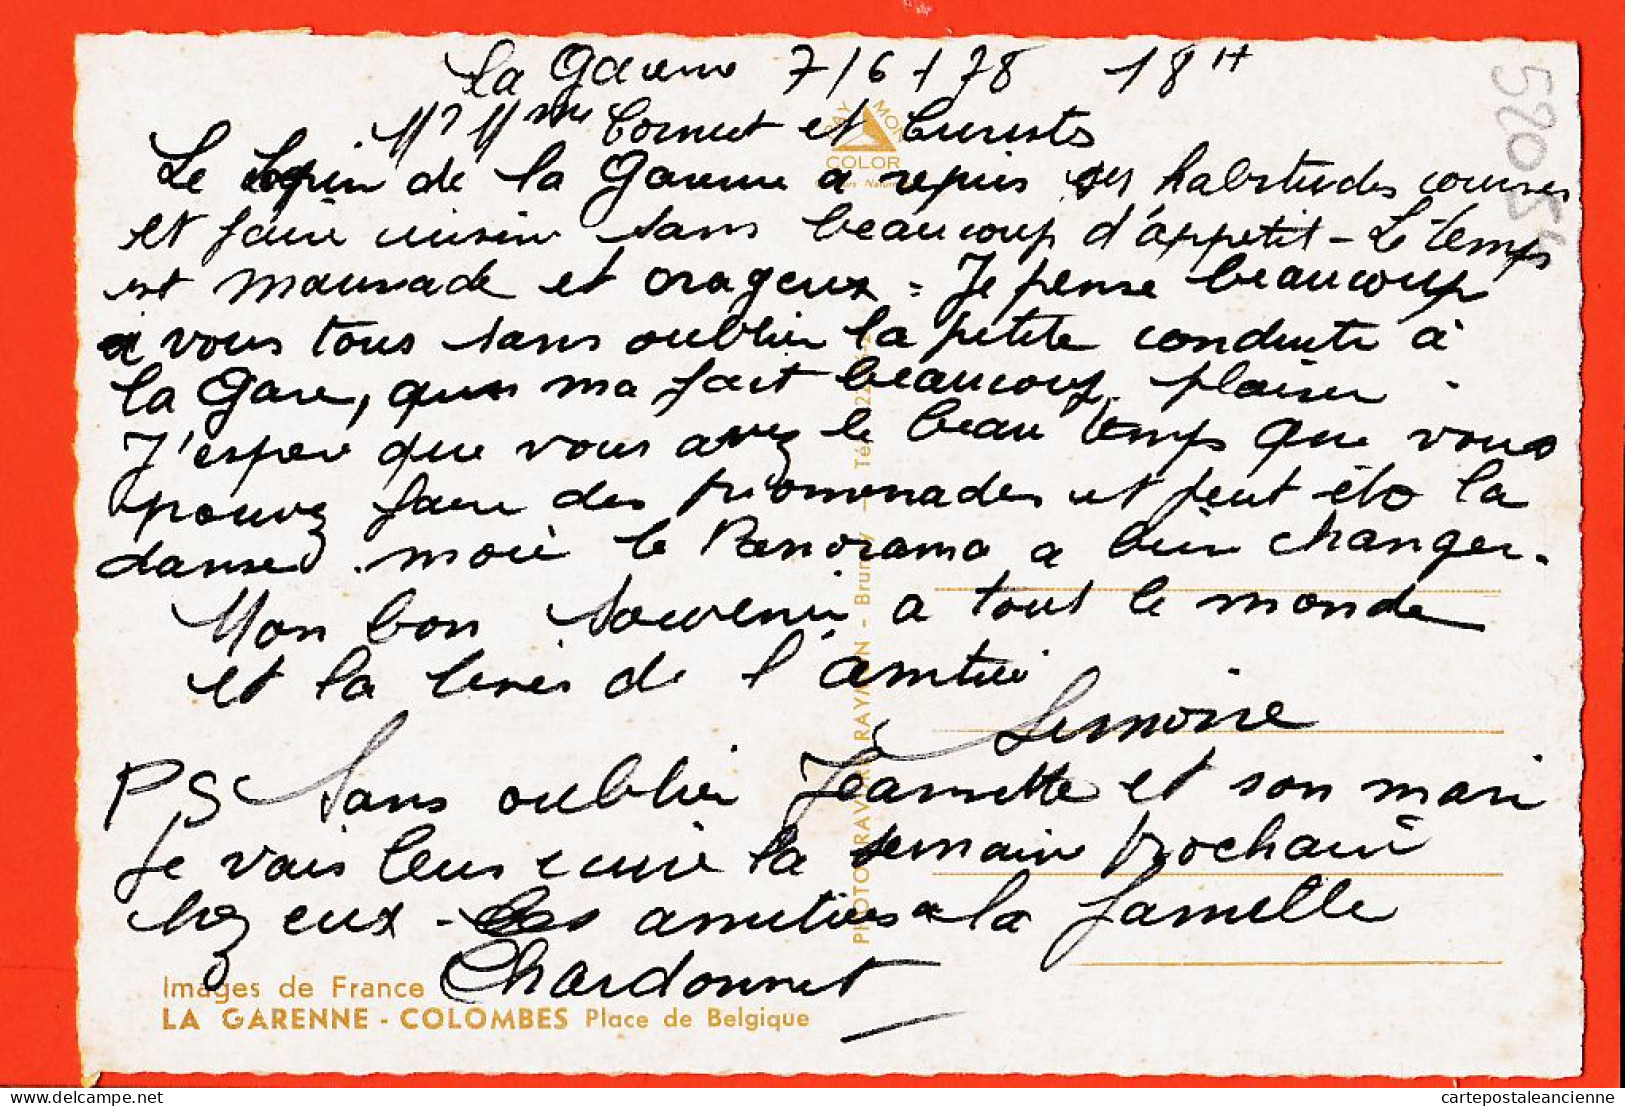 La Garenne 7/6/78 18H
Mr Mme Cornut et Curistes
Le lapin de la Garenne a repris ses habitudes courses
et faire cuisine sans beaucoup d'appetit - Le temps
est maussade et orageux = Je pense beaucoup
a vous tous sans oublier la petite conduite à
la Gare, qui ma fait beaucoup plaisir.
J'espere que vous avez le beau temps que vous
pouvez faire des promenades et peut être la
danse. moi le Panorama a bien changer.
Mon bon souvenir a tout le monde
et la bises de l'amitié
Simone
PS Sans oublier Jeannette et son mari
Je vais leur ecrire la semaine prochaine
chez eux - amities a la famille
Chardonnet
Images de France
LA GARENNE - COLOMBES Place de Belgique
RAY MON
COLOR
PHOTO RAVAYRE RAYMON - Brunoy - Tél.
52055
delcampe.net
cartepostaleancienne